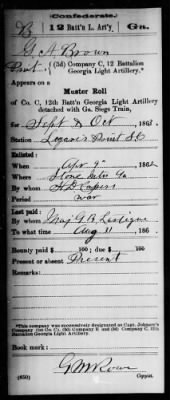 (Confederate.)
B 12 Batt'n L. Art'y. Ga.
G. H. Brown
Pvt., (3d) Company C, 12 Battalion
Georgia Light Artillery.*
Appears on a
Muster Roll
of Co. C, 12th Batt'n Georgia Light Artillery
detached with Ga. Siege Train,
for Sept & Oct, 186
Station
Enlisted:
When Apr 9, 1862
Where Stone Ga
By whom H D Capers
Period war
Last paid:
By whom Maj G B
To what time Aug 31, 186
Bounty paid $ 100; due $ 100
Present or absent Present
Remarks:
*This company was successively designated as Capt. Johnson's
Company (1st Co. C), (3d) Company E and (3d) Company C, 12th
Battalion Georgia Light Artillery.
Book mark:
G M
(650) Copyist.